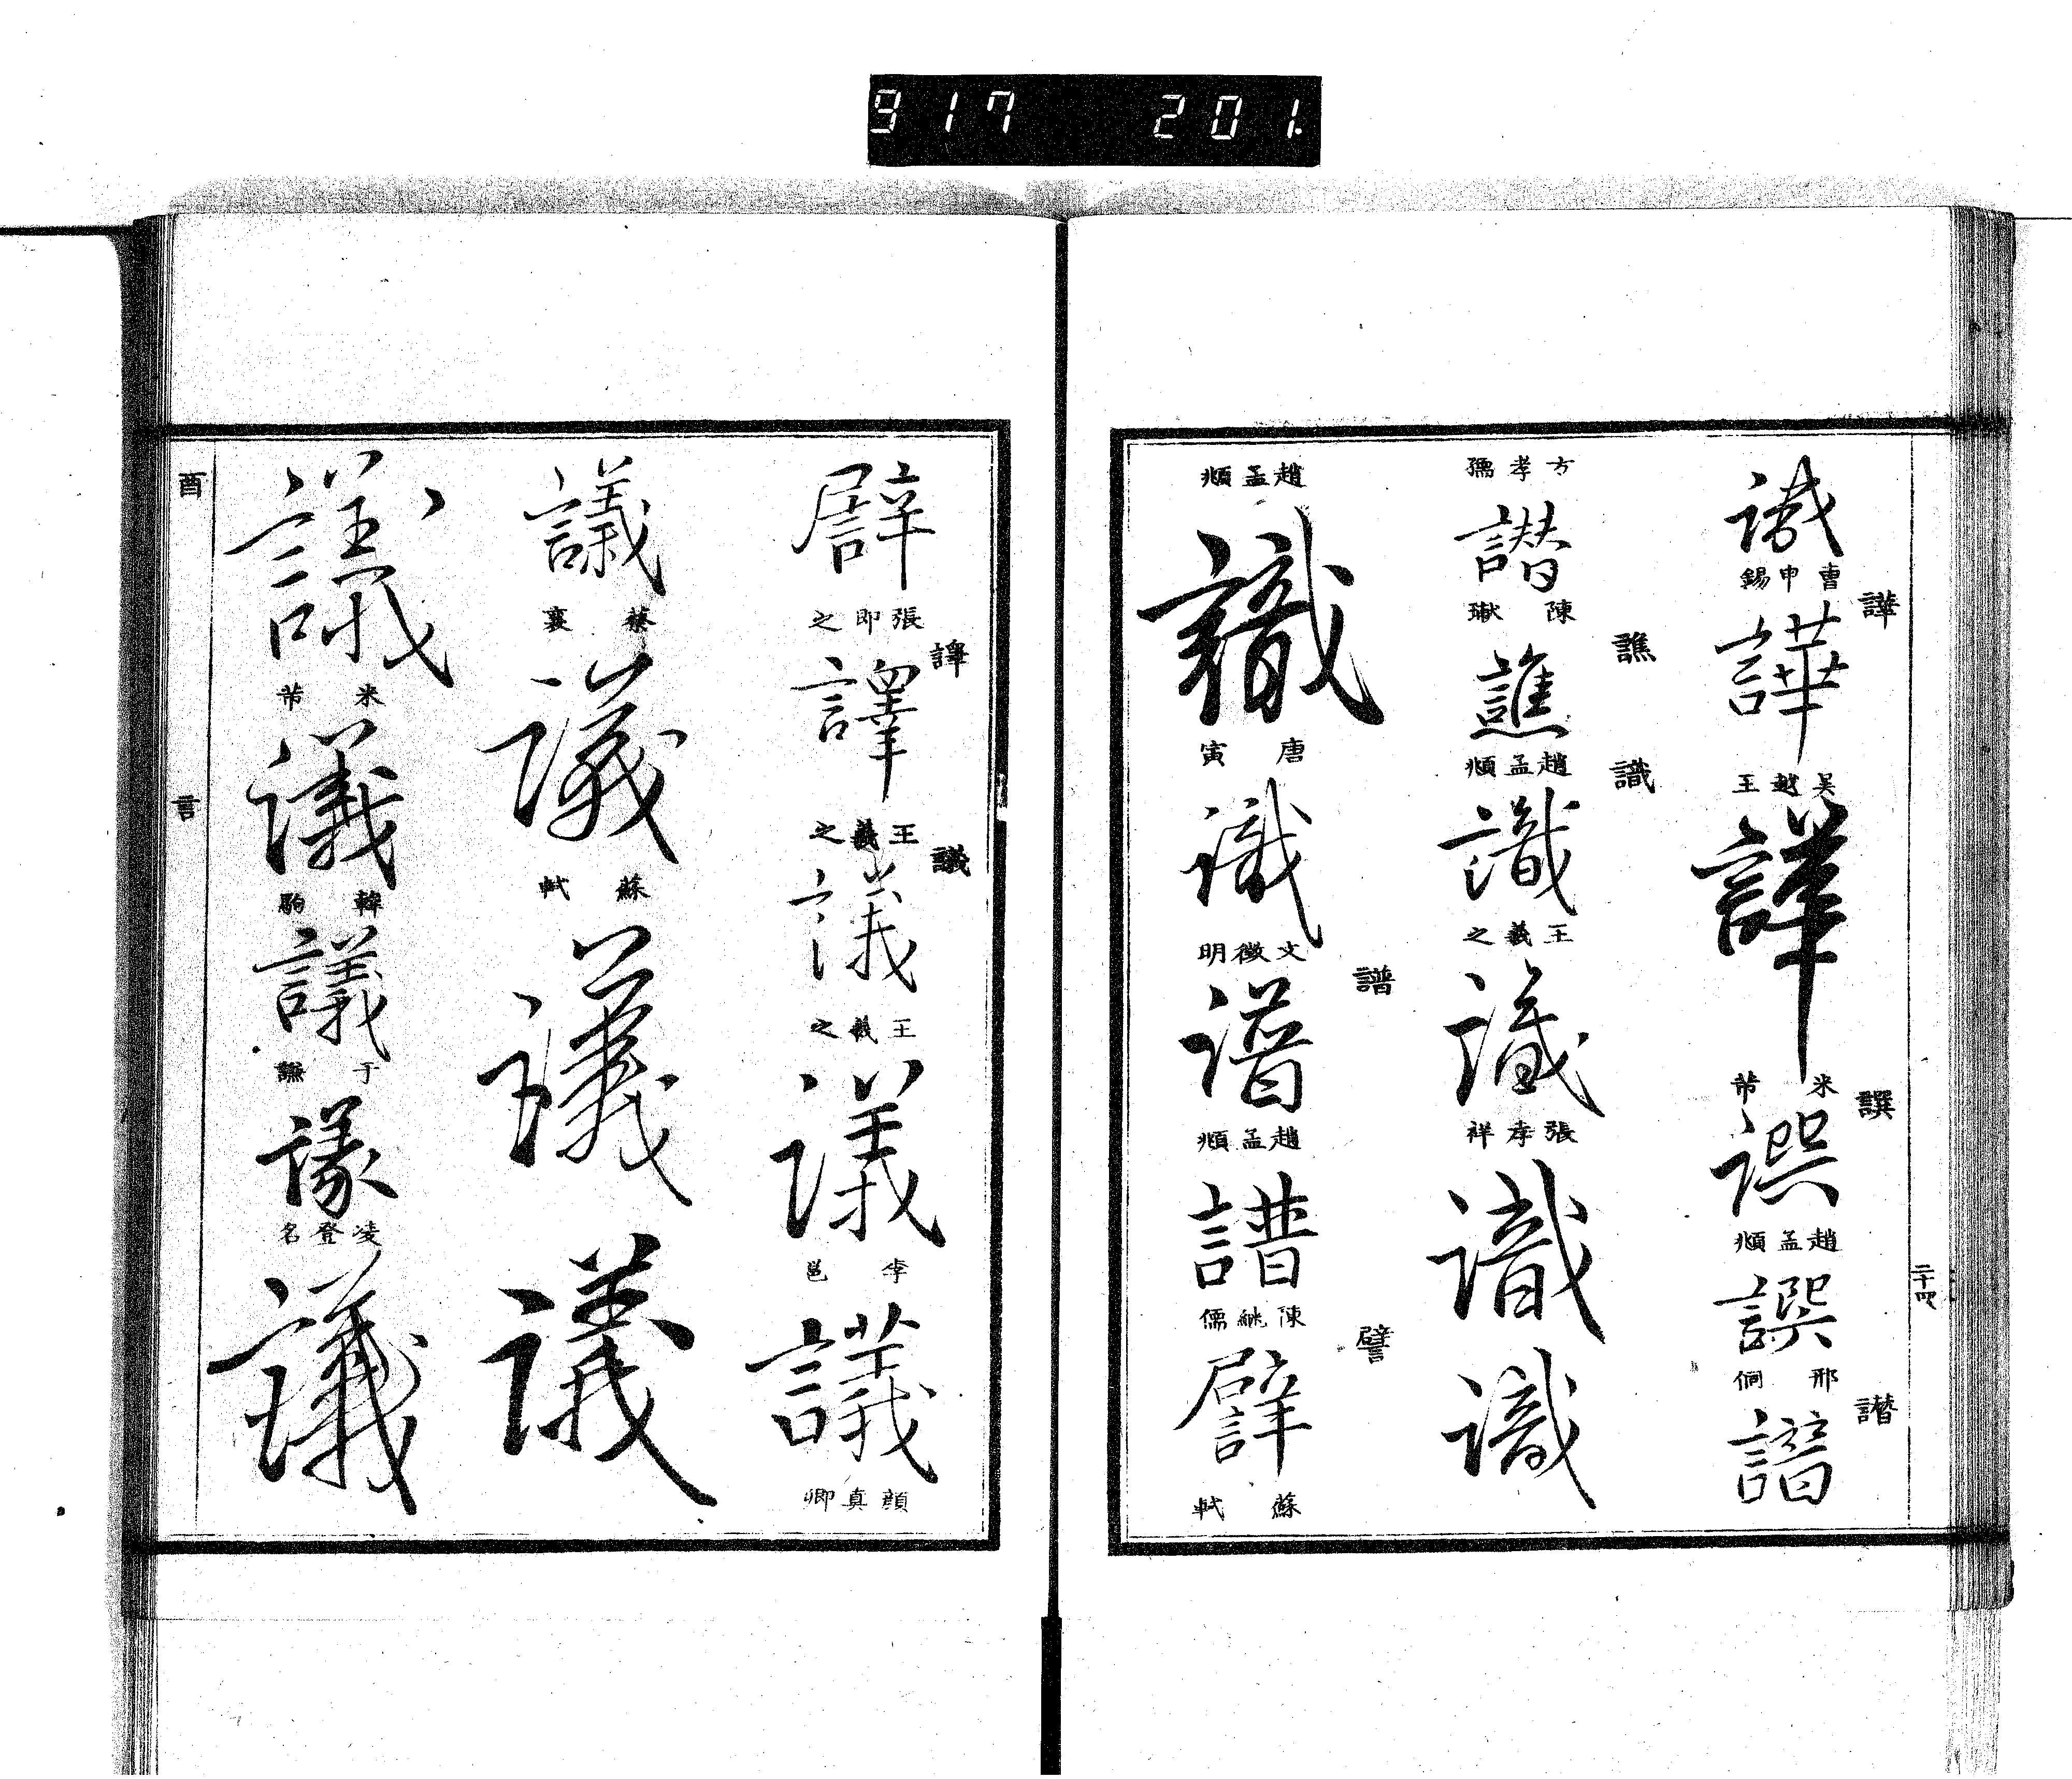 917 201.
二十四
譁
曹申錫
譁
吳越王
譁
譔
米芾
譔
趙孟頫
譔
譖
邢侗
譖
方孝孺
譖
譙
譙
識
趙孟頫
識
王羲之
識
張孝祥
識
識
趙孟頫
識
唐寅
識
譜
文徵明
譜
趙孟頫
譜
譬
陳繼儒
譬
蘇軾
譬
譯
張即之
譯
議
王羲之
議
王羲之
議
李邕
議
顏真卿
議
蔡襄
議
蘇軾
議
議
議
米芾
議
韓駒
議
于謙
議
凌登名
議
酉 言